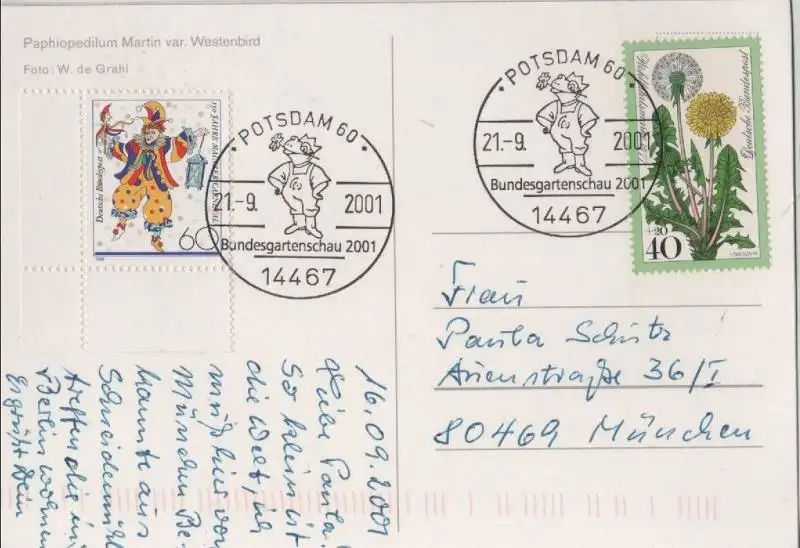 Paphiopedilum Martin var. Westenbird
Foto: W. de Grahl
Deutsche Bundespost
150 JAHRE MAINZER KARNEVAL
60
POTSDAM 60
21.-9. 2001
Bundesgartenschau 2001
14467
POTSDAM 60
21.-9. 2001
Bundesgartenschau 2001
14467
Wohlfahrtsmarke 1977
Deutsche Bundespost
+20
40
LÖWENZAHN
Frau
Paula Schütz
Auenstraße 36/I
80469 München
16.09.2001
Liebe Paula!
So klein ist
die Welt, ich
muß hier von
München Be-
kannte aus
Schneidemühl
treffen die in
Berlin wohnen
Es grüßt Dein